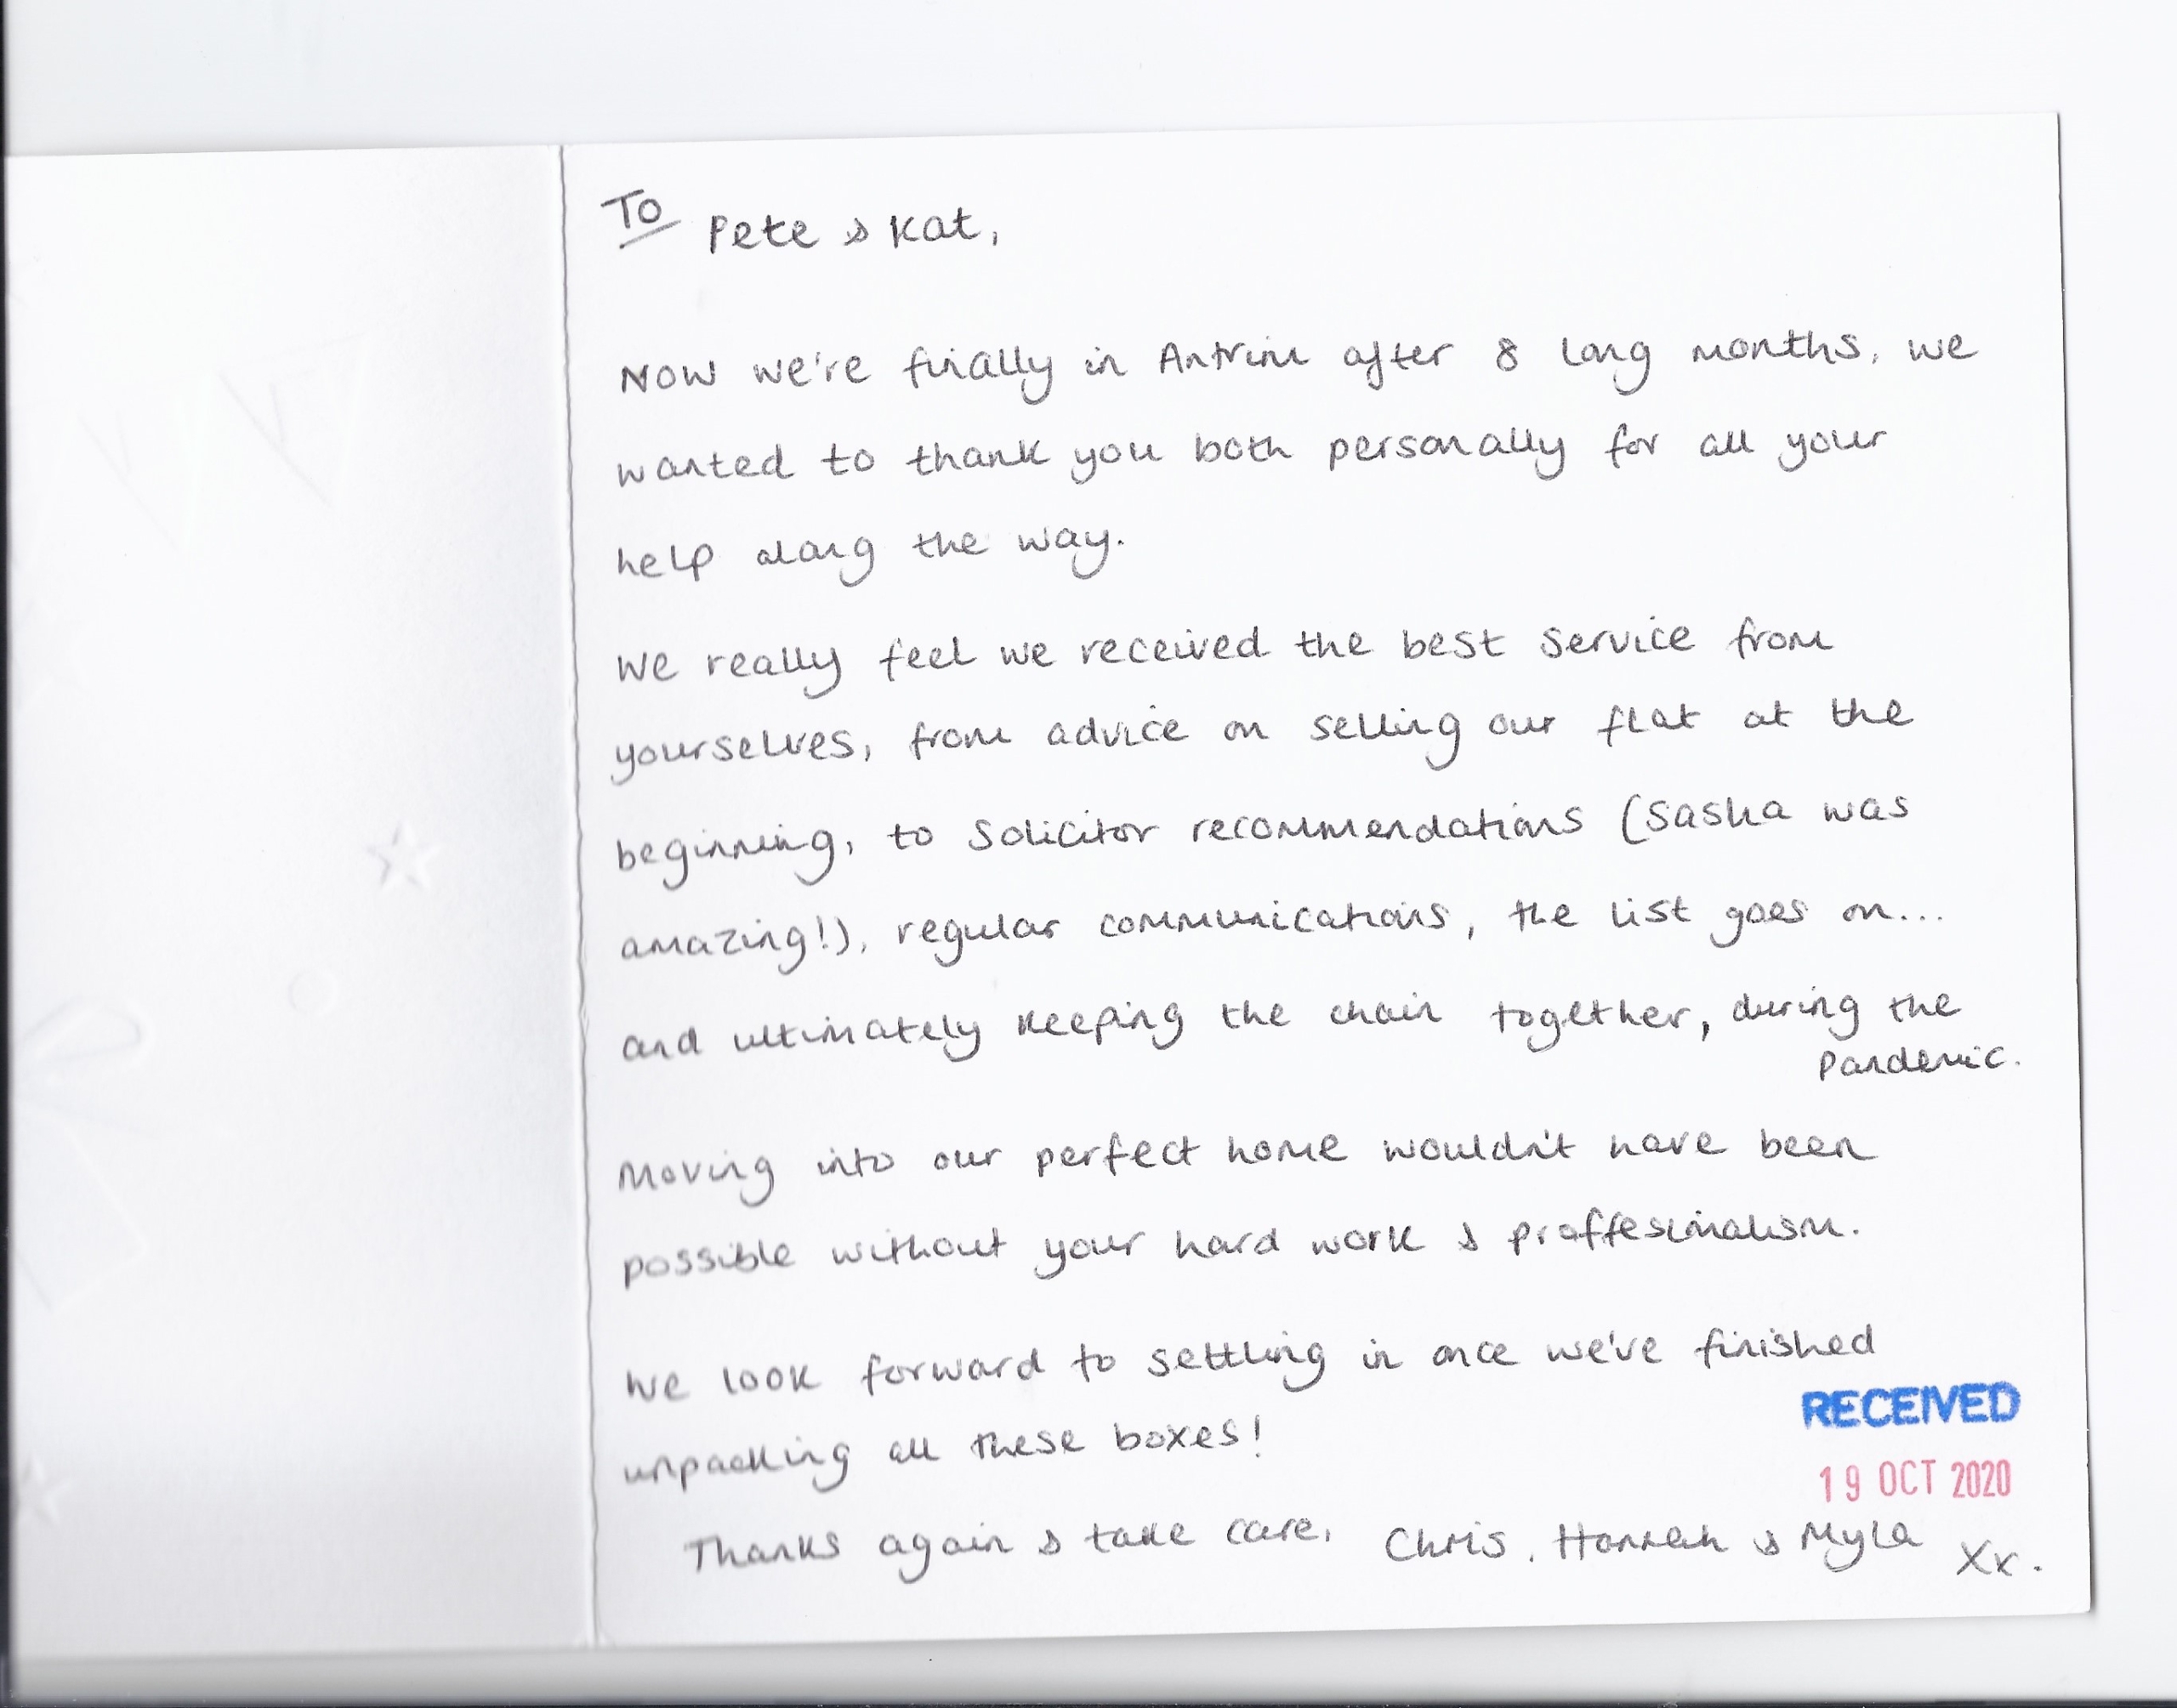 To Pete & Kat,
Now we're finally in Antrim after 8 long months, we
wanted to thank you both personally for all your
help along the way.
We really feel we received the best service from
yourselves, from advice on selling our flat at the
beginning, to Solicitor recommendations (Sasha was
amazing!), regular communications, the list goes on...
and ultimately keeping the chain together, during the
Pandemic.
Moving into our perfect home wouldn't have been
possible without your hard work & proffesionalism.
We look forward to settling in once we've finished
unpacking all these boxes!
RECEIVED
19 OCT 2020
Thanks again & take care, Chris, Hannah & Myla xx.